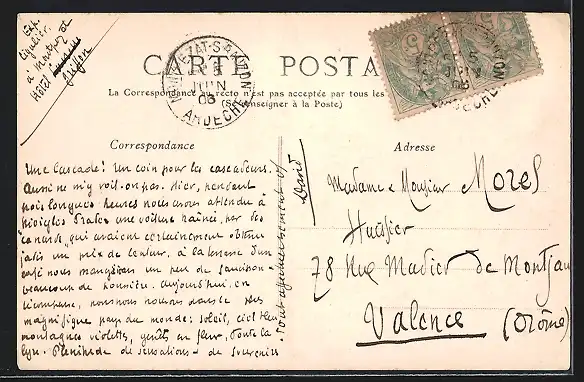 Exp.
à Montpezat
Hôtel
CARTE POSTALE
MONTPEZAT-S-BAUZON
JUIN
06
ARDECHE
La Correspondance au recto n'est pas acceptée par tous les
(Se renseigner à la Poste)
Correspondance
Adresse
Une Cascade! Un coin pour les cascadeurs.
Aussi ne m'y voit-on pas. Hier, pendant
trois longues heures nous avons attendu à
une voiture traînée, par des
"canards" qui avaient certainement obtenu
jadis un prix de lenteur, à la terrasse d'un
café nous mangions un peu de saucisson
beaucoup de poussière. Aujourd'hui, en
récompense, nous nous trouvons dans le plus
magnifique pays du monde: soleil, ciel bleu
montagnes violettes, genêts en fleur, toute la
lyre. Plénitude de sensations et de souvenirs
Tout affectueusement à vous
David
Madame & Monsieur Morel
Huissier
78 Rue Madier de Montjau
Valence (Drôme)